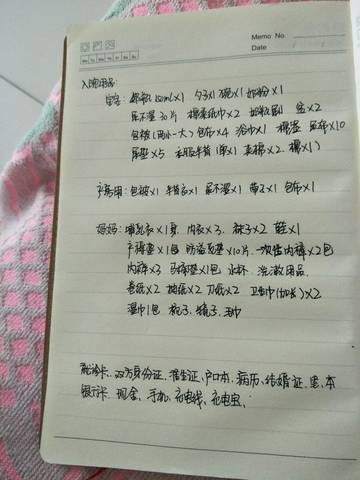 Memo No.
Date
Mo Tu We Th Fr Sa Su
入院用品:
宝宝: 奶瓶 150ml×1 勺子×1 碗×1 奶粉×1
尿不湿 30片 棉柔纸巾×2 奶瓶刷 盆×2
包被(两小一大) 包布×4 浴巾×1 棉 尿布×10
尿垫×5 衣服半背(单×1 夹棉×2 棉×1)
产房用: 包被×1 半背衣×1 尿不湿×1 带子×1 包布×1
妈妈: 哺乳衣×1身 内衣×3 袜子×2 鞋×1
产褥垫×1包 防溢乳垫×10片 一次性内裤×2包
内裤×3 马桶垫×1包 水杯 洗漱用品
卷纸×2 抽纸×2 刀纸×2 卫生巾(加长)×2
湿巾1包 梳子 镜子 毛巾
就诊卡、双方身份证、准生证、户口本、病历、结婚证、笔、本
银行卡 现金、手机、充电线、充电宝、